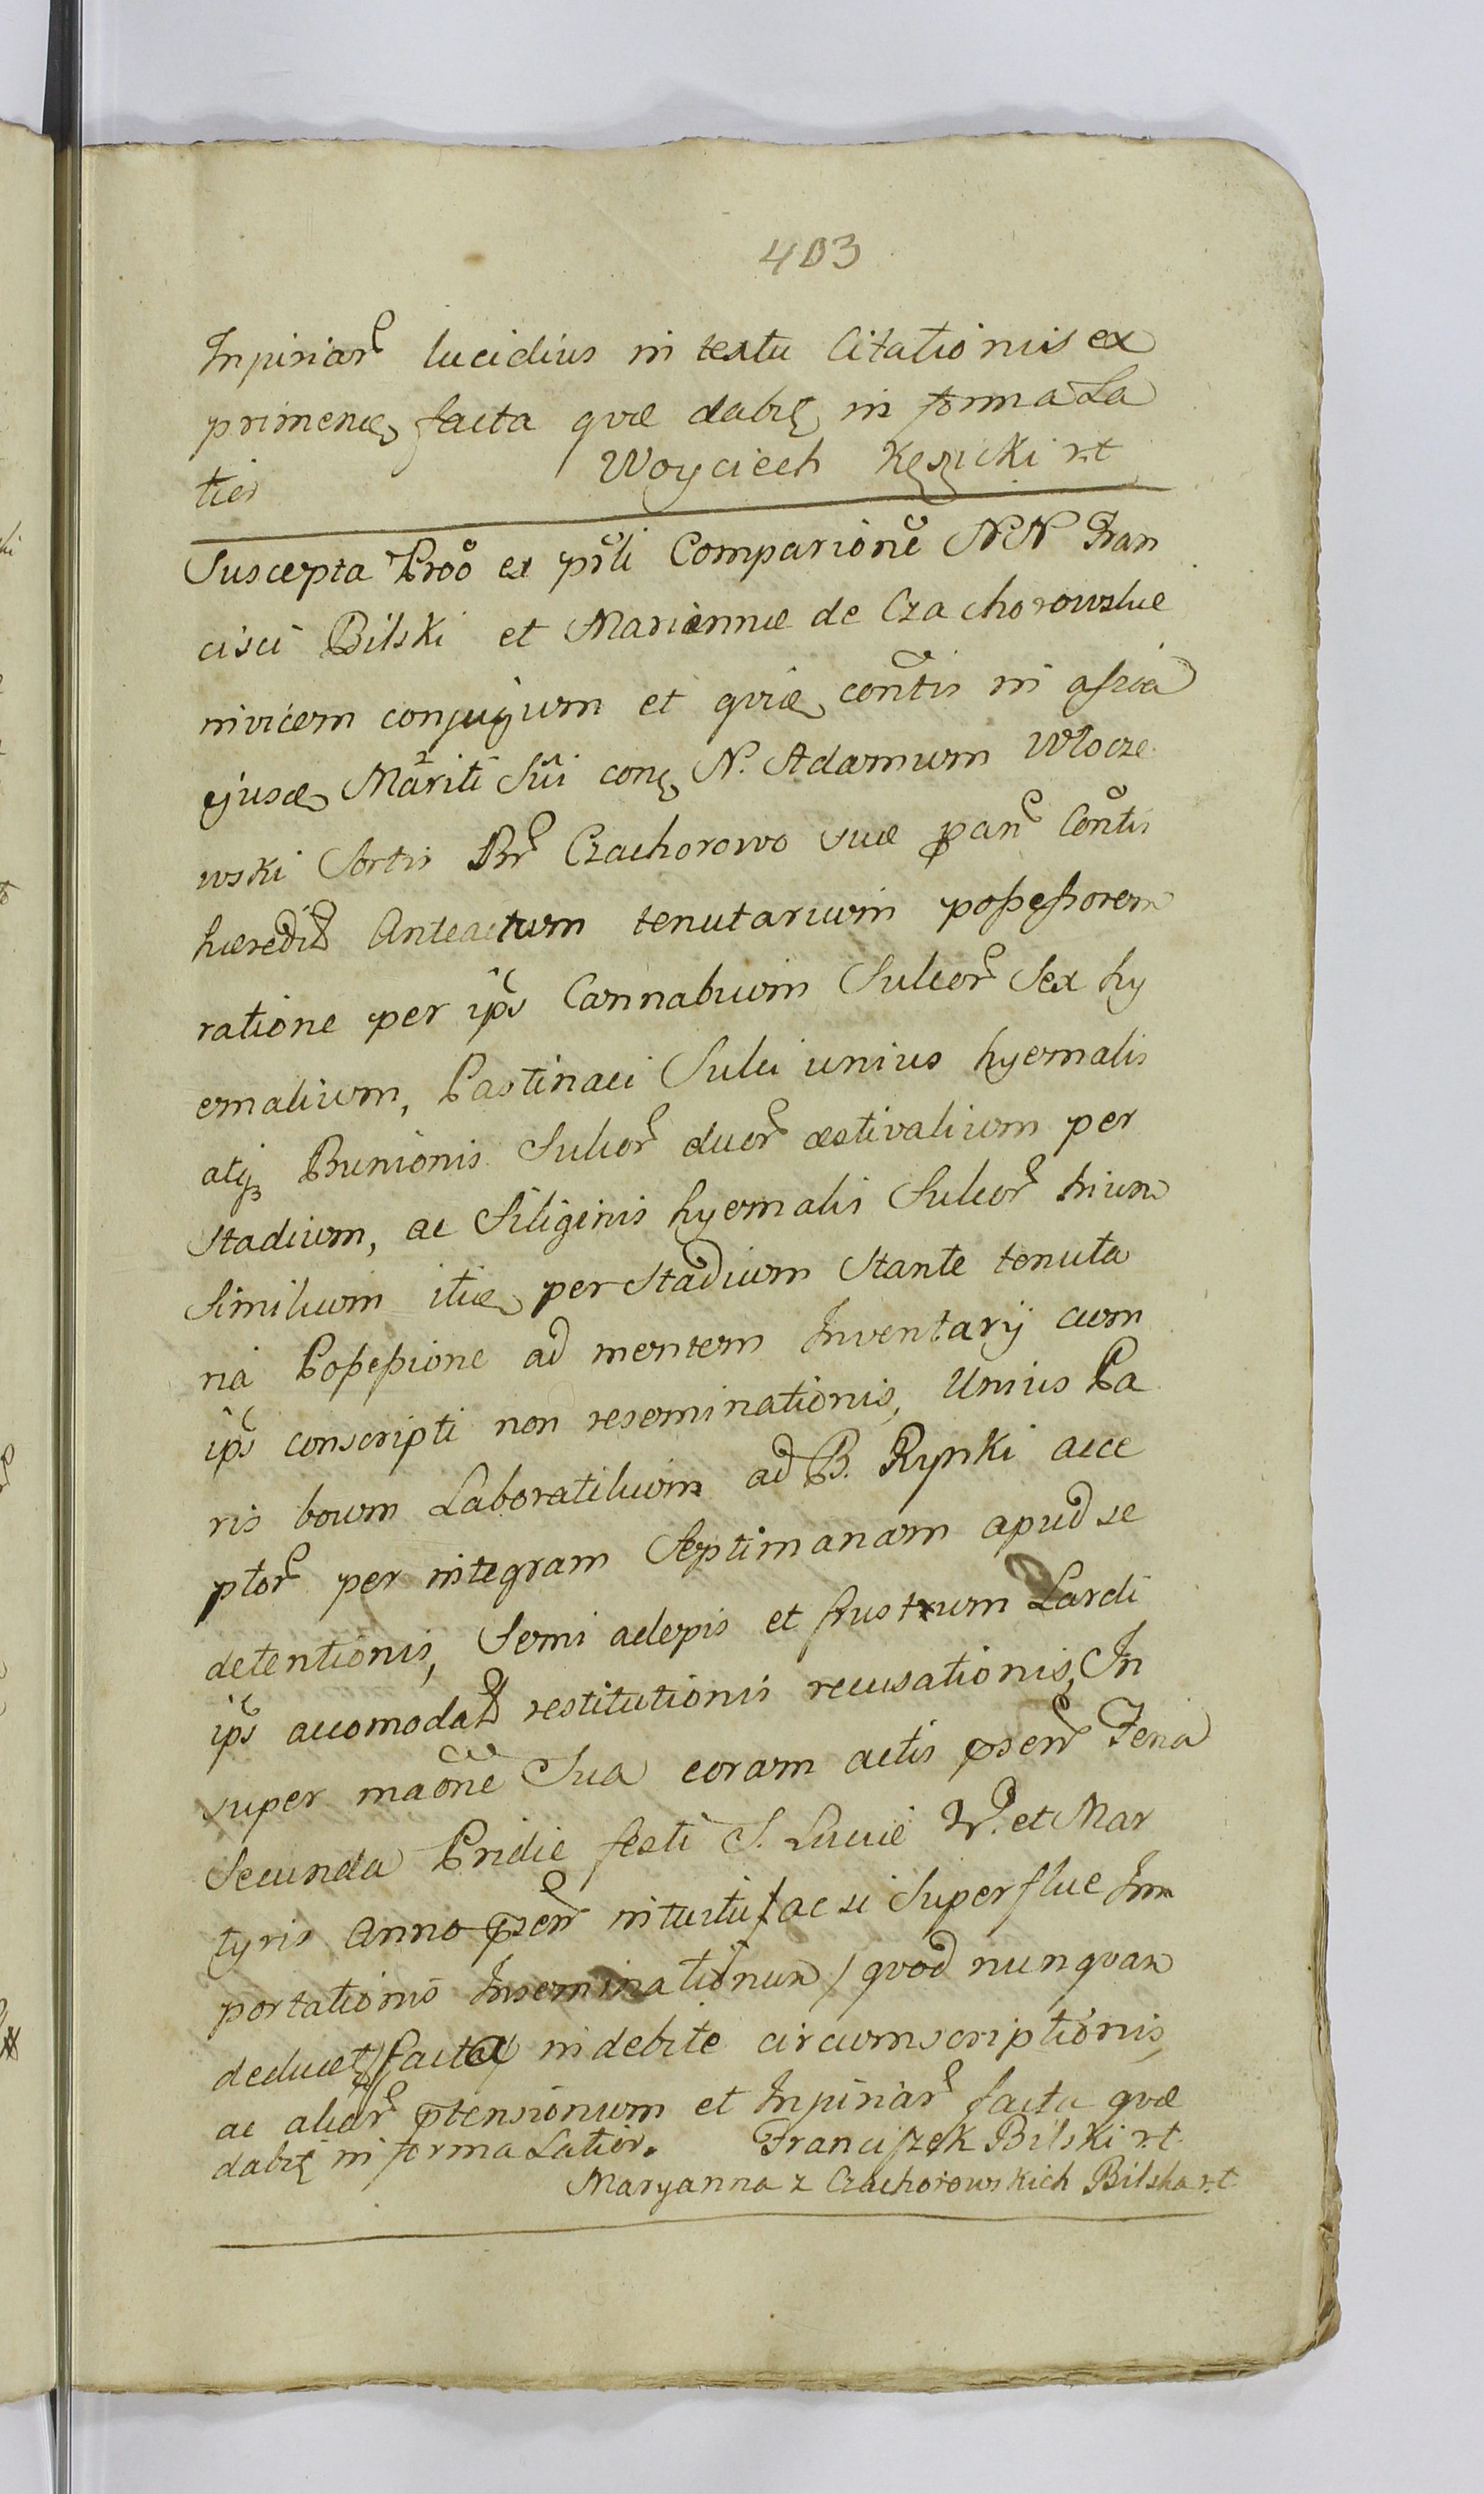 403
Inpiriar̃ lucidius in textu Citationis ex
primenđ facta quæ dabit̃ in forma La
tior̃
Woyciech Kęszicki r.t
Suscepta Proõ ex pñli Comparitione NN Fran
cisci Bilski et Mariannæ de Czachorowskie
invicem conjugum et quid contis in assia
ejusđ Mariti Sui con̨ N. Adamum Włocze
wski Sortis Br̃ Czachorowo suæ p̃an̄ Con̄tis
hæredit̃ Anteactum tenutarium possessorem
ratione per ip̃s Cannabium Sulcor̃ Sex hy
emalium, Pastinaci Sulci unius hyemalis
atq̨ Bunionis Sulcor̃ duor̃ æstivalium per
Stadium, ac Siliginis hyemalis Sulcor̃ trium
Similium itid̃ per Stadium Stante tenuta
ria Possessione ad mentem Inventarÿ cum
ip̃s conscripti non reseminationis, Unius Pa
ris boum Laboratilium ad B. Rypki acce
ptor̃ per integram Septimanam apud se
detentionis, Semi adepis et frustrum Lardi
ip̃s accomodat̃ restitutionis recusationis, In
super maōnē Sua coram actis p̃sen̄ Feria
Secunda Pridie festi S. Luciæ V. et Mar
tyris Anno p̃sen̄ intuitu / ac si Superflue Im
portationis Inseminationum / quod nunquam
deducet̃ / facta indebite circumscriptionis,
ac aliar̃ p̃tensionum et Inpiriar̃ facta quæ
dabit̃ in forma Latior. Franciszek Bilski r.t.
Maryanna z Czachorowskich Bilska r.t